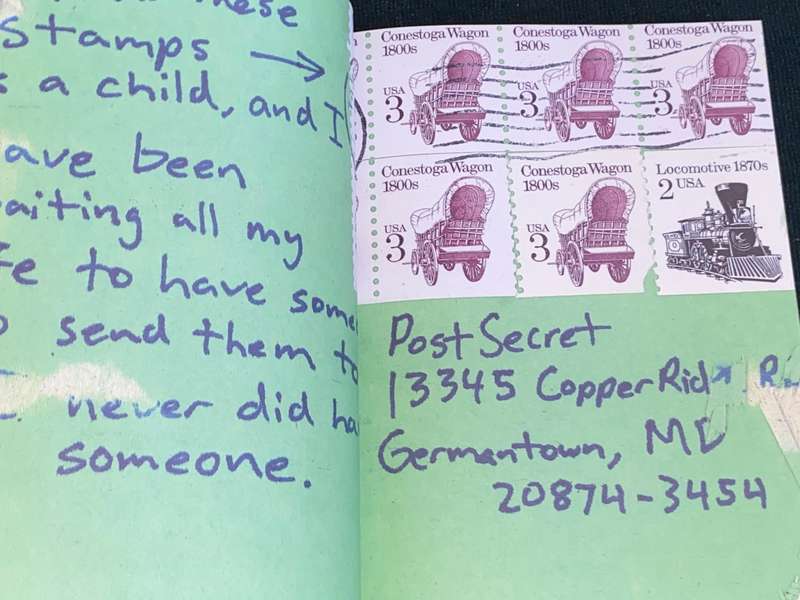 these
stamps →
s a child, and I
ave been
aiting all my
fe to have some
send them to
never did ha
someone.
Conestoga Wagon Conestoga Wagon Conestoga Wagon
1800s 1800s 1800s
USA USA USA
3 3 3
Conestoga Wagon Conestoga Wagon Locomotive 1870s
1800s 1800s 2 USA
USA USA
3 3
PostSecret
13345 Copper Rid
Germantown, MD
20874-3454